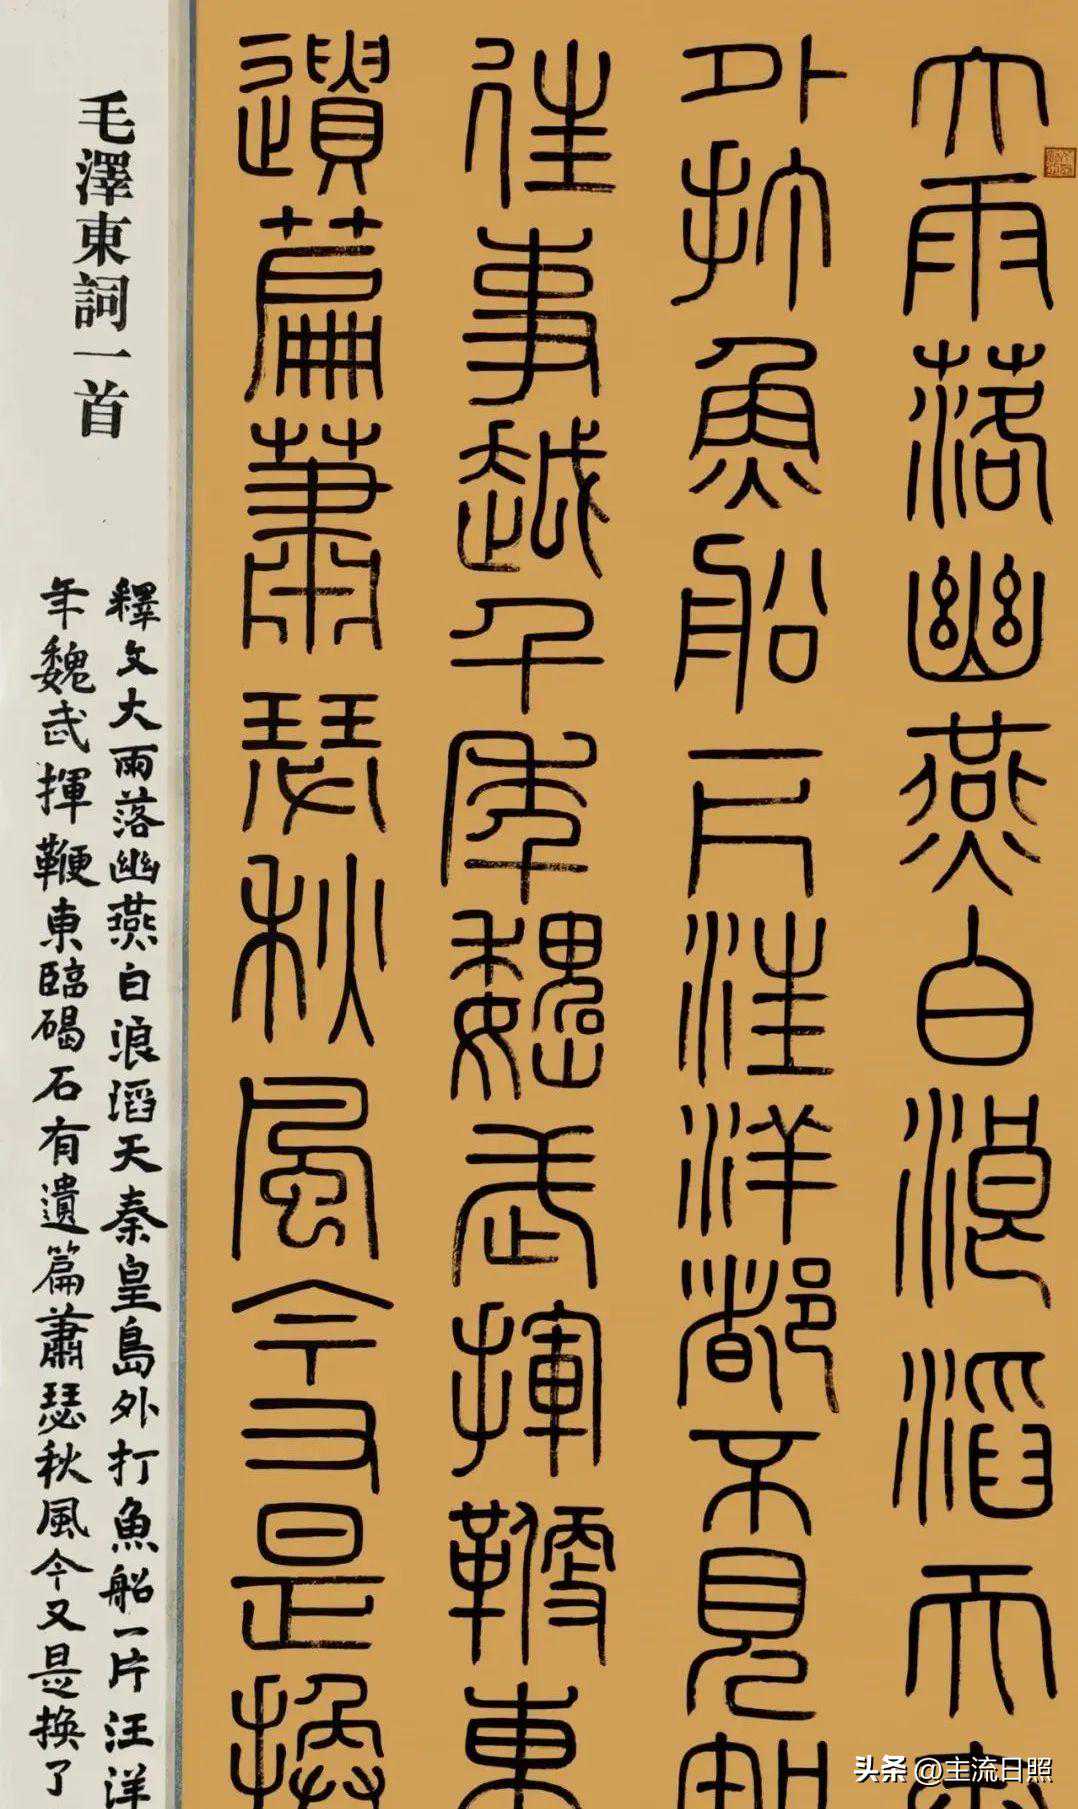 大雨落幽燕白浪滔天
外打魚船一片汪洋都不見知
往事越千年魏武揮鞭東
遺篇蕭瑟秋風今又是換
毛澤東詞一首
釋文大雨落幽燕白浪滔天秦皇島外打魚船一片汪洋
年魏武揮鞭東臨碣石有遺篇蕭瑟秋風今又是換了
头条 @主流日照